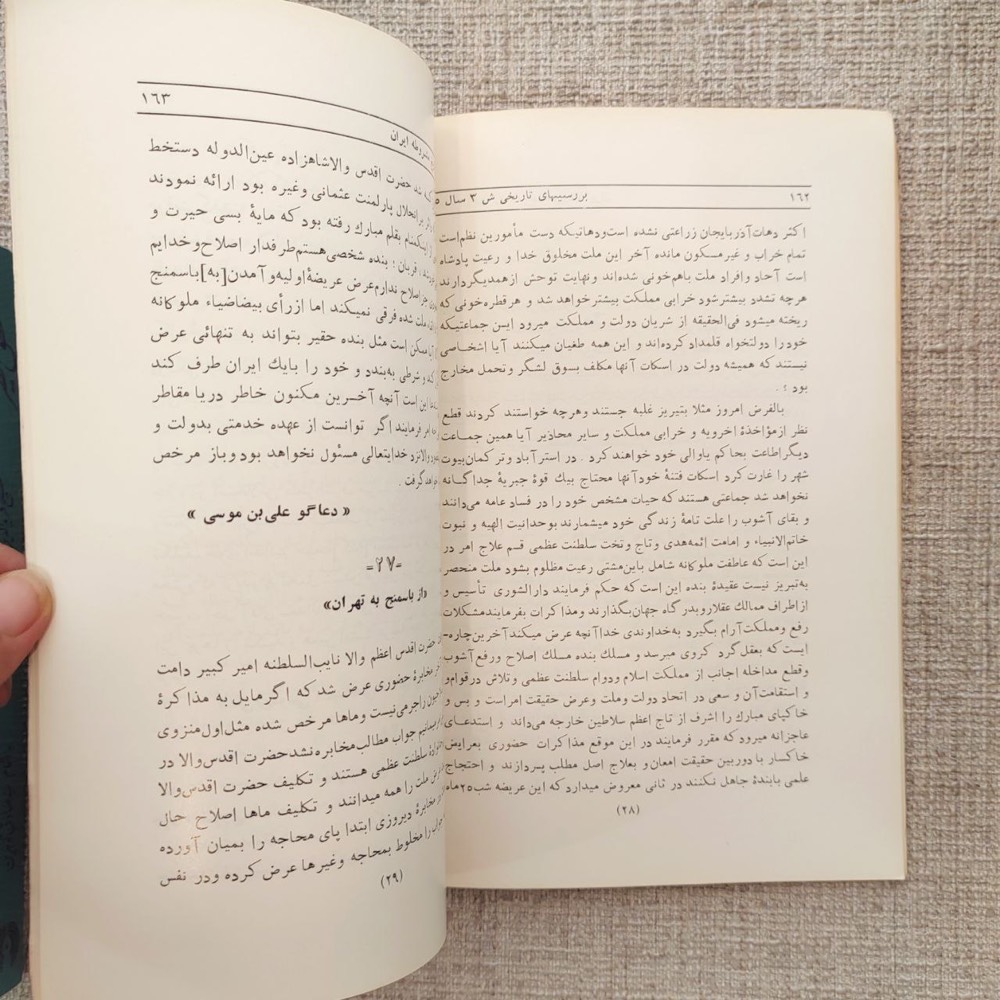 ١٦٢
بررسیهای تاریخی ش ٣ سال ٥
اکثر دهات آذربایجان زراعتی نشده است ودهاتیکه دست مأمورین نظم است
تمام خراب و غیرمسکون مانده آخر این ملت مخلوق خدا و رعیت پادشاه
است آحاد وافراد ملت باهم خونی شده‌اند ونهایت توحش ازهمدیگردارند
هرچه تشدد بیشترشود خرابی مملکت بیشترخواهد شد و هرقطره‌خونی که
ریخته میشود فی‌الحقیقه از شریان دولت و مملکت میرود ایـن جماعتیکه
خودرا دولتخواه قلمداد کرده‌اند و این همه طغیان میکنند آیـا اشخاصی
نیستند که همیشه دولت در اسکات آنها مکلف بسوق لشگر وتحمل مخارج
بود ؛ .
بالفرض امروز مثلا بتبریز غلبه جستند وهرچه خواستند کردند قطع
نظر ازمؤاخذهٔ اخرویه و خرابی مملکت و سایر محاذیر آیا همین جماعت
دیگراطاعت بحاکم یاوالی خود خواهند کرد . در استرآباد وتر کمان‌بیوت
شهر را غارت کرد اسکات فتنهٔ خودآنها محتاج بیك قوهٔ جبریهٔ جداگانه
نخواهد شد جماعتی هستند که حیات مشخص خود را در فساد عامه می‌دانند
و بقای آشوب را علت تامهٔ زندگی خود میشمارند بوحدانیت الهیه و نبوت
خاتم‌الانبیاء و امامت ائمه‌هدی و تاج وتخت سلطنت عظمی قسم علاج امر در
این است که عاطفت ملوکانه شامل باین‌مشتی رعیت مظلوم بشود ملت منحصر
به‌تبریز نیست عقیدهٔ بنده این است که حکم فرمایند دارالشوری تأسیس و
ازاطراف ممالك عقلارو بدرگاه جهان‌بگذارند ومذاکرات بفرمایند مشکلات
رفع ومملکت آرام بگیرد به‌خداوندی خداآنچه عرض میکند آخرین چاره-
ایست که بعقل گرد کروی میرسد و مسلك بنده مسلك اصلاح ورفع آشوب
وقطع مداخله اجانب از مملکت اسلام ودوام سلطنت عظمی وتلاش درقوام‌و
و استقامت‌آن و سعی در اتحاد دولت وملت وعرض حقیقت امراست و بس و
خاکپای مبارك را اشرف از تاج اعظم سلاطین خارجه می‌داند و استدعـای
عاجزانه میرود که مقرر فرمایند در این موقع مذاکرات حضوری بعرایض
خاکسار با دوربین حقیقت امعان و بعلاج اصل مطلب پسردازند و احتجاج
علمی بابندهٔ جاهل نکنند در ثانی معروض میدارد که این عریضه شب ٢٥ماه
(٢٨)
١٦٣
مشروطه ایران
که شد حضرت اقدس والاشاهزاده عین‌الدوله دستخط
برانحلال پارلمنت عثمانی وغیره بود ارائه نمودند
بقلم مبارك رفته بود که مایهٔ بسی حیرت و
قربان ؛ بنده شخصی‌هستم‌طرفدار اصلاح‌وخدایم
جزاصلاح ندارم‌عرض عریضهٔ اولیه‌وآمدن[به]باسمنج
ملت شده فرقی نمیکند اما ازرأی بیضاضیاء ملوکانه
ممکن است مثل بنده حقیر بتواند به تنهائی عرض
و شرطی به‌بندد و خود را بایك ایران طرف کند
این است آنچه آخرین مکنون خاطر دریا مقاطر
فرمایند اگر توانست از عهده خدمتی بدولت و
والانزد خدایتعالی مسئول نخواهد بود وباز مرخص
گرفت .
« دعاگو علی‌بن موسی »
-٢٧-
«از باسمنج به تهران»
حضرت اقدس اعظم والا نایب‌السلطنه امیر کبیر دامت
مخابرهٔ حضوری عرض شد که اگر مایل به مذاکرهٔ
راجرمی‌نیست وماها مرخص شده مثل‌اول‌منزوی
جواب مطالب مخابره نشد حضرت اقدس‌والا در
سلطنت عظمی هستند و تکلیف حضرت اقدس‌والا
ملت را همه میدانند و تکلیف ماها اصلاح حال
مخابرهٔ دیروزی ابتدا پای محاجه را بمیان آورده
را مخلوط بمحاجه وغیرها عرض کرده ودر نفس
(٢٩)